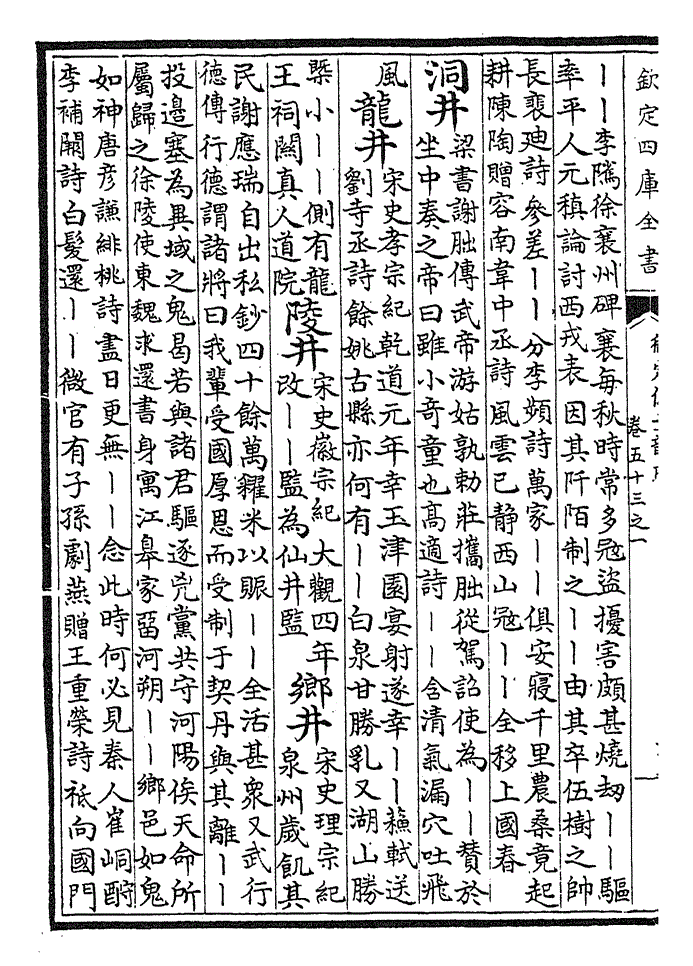 欽定四庫全書
卷五十三之一
｜｜李隲徐襄州碑襄每秋時常多寇盜擾害頗甚燒刼｜｜驅
率平人元稹論討西戎表因其阡陌制之｜｜由其卒伍樹之帥
長裴廸詩參差｜｜分李頻詩萬家｜｜俱安寢千里農桑竟起
耕陳陶贈容南韋中丞詩風雲已静西山寇｜｜全移上國春
洞井
梁書謝朏傳武帝游姑孰勅莊攜朏從駕詔使為｜｜贊於
坐中奏之帝曰雖小奇童也高適詩｜｜含清氣漏穴吐飛
風
龍井
宋史孝宗紀乾道元年幸玉津園宴射遂幸｜｜蘇軾送
劉寺丞詩餘姚古縣亦何有｜｜白泉甘勝乳又湖山勝
槩小｜｜側有龍
王祠闕真人道院
陵井
宋史徽宗紀大觀四年
改｜｜監為仙井監
鄉井
宋史理宗紀
泉州歲飢其
民謝應瑞自出私鈔四十餘萬糴米以賑｜｜全活甚衆又武行
德傳行德謂諸將曰我輩受國厚恩而受制于契丹與其離｜｜
投邊塞為異域之鬼曷若與諸君驅逐兇黨共守河陽俟天命所
屬歸之徐陵使東魏求還書身寓江臯家留河朔｜｜鄉邑如鬼
如神唐彦謙緋桃詩盡日更無｜｜念此時何必見秦人崔峒酧
李補闕詩白髮還｜｜微官有子孫劇燕贈王重榮詩祗向國門